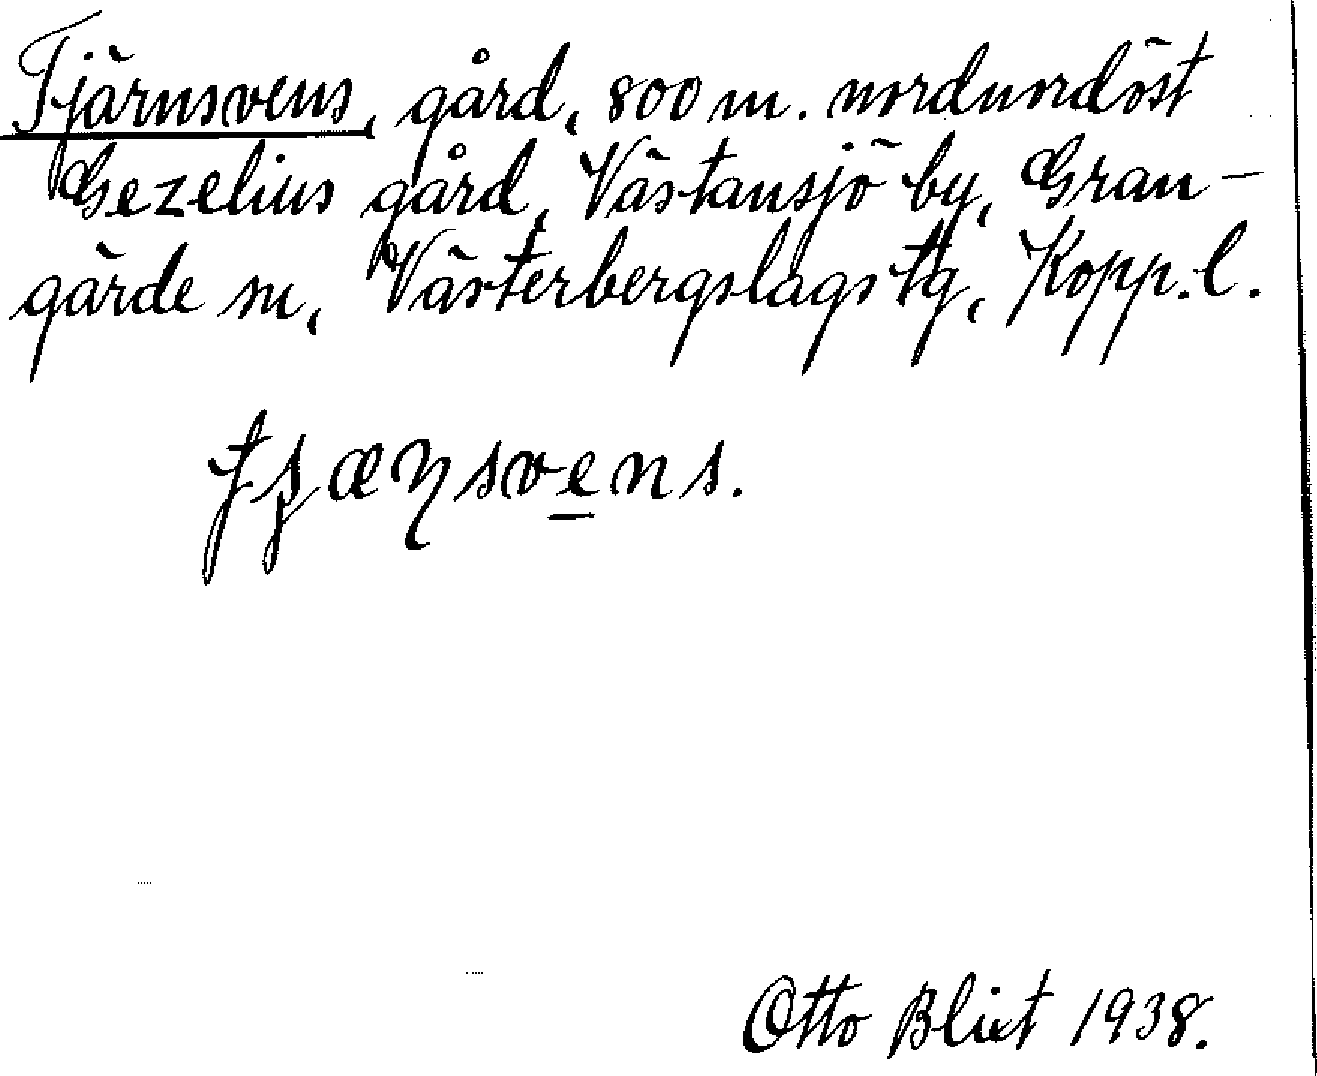 Tjärnsvens, gård, 800 m. nordnordöst
Gezelius gård, Västansjö by, Gran-
gärde sn, Västerbergslags tg, Kopp. l.
tʂæɳsvens.
Otto Blixt 1938.